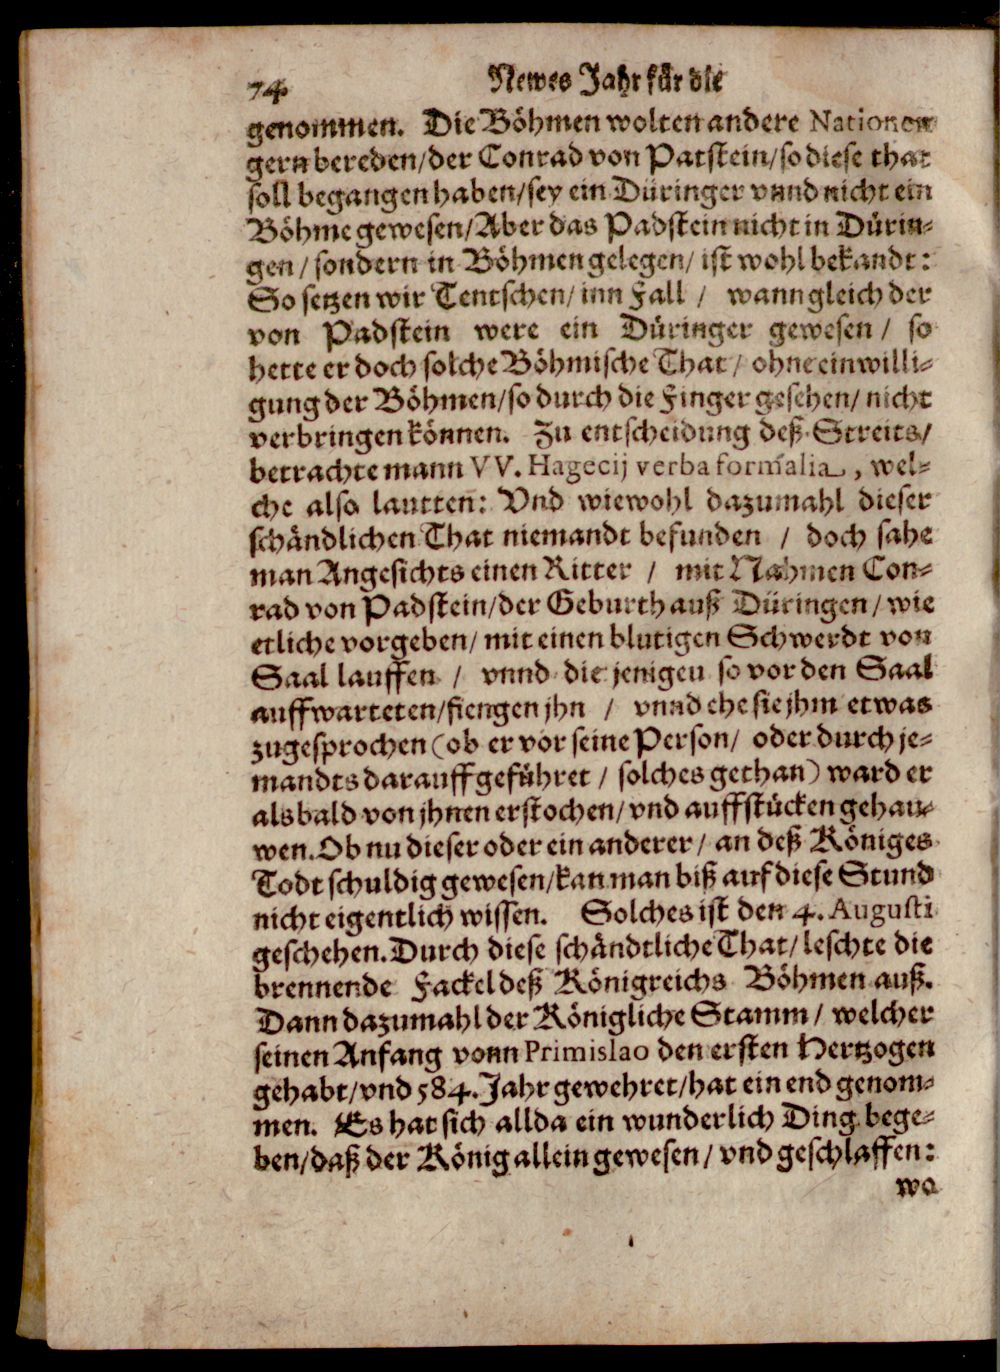 74 Newes Jahr für die
genommen. Die Böhmen wolten andere Nationen
gern bereden/der Conrad von Patstein/so diese that
soll begangen haben/sey ein Düringer vnnd nicht ein
Böhme gewesen/Aber das Padstein nicht in Dürin-
gen/sondern in Böhmen gelegen/ist wohl bekandt:
So setzen wir Tentschen/inn Fall/ wann gleich der
von Padstein were ein Düringer gewesen/ so
hette er doch solche Böhmische That/ohne einwilli-
gung der Böhmen/so durch die Finger gesehen/nicht
verbringen können. Zu entscheidung deß Streits/
betrachte mann VV. Hagecij verba formalia, wel-
che also lautten: Vnd wiewohl dazumahl dieser
schändlichen That niemandt befunden / doch sahe
man Angesichts einen Ritter / mit Nahmen Con-
rad von Padstein/der Geburth auß Düringen/wie
etliche vorgeben/mit einen blutigen Schwerdt von
Saal lauffen / vnnd die jenigen so vor den Saal
auffwarteten/fiengen jhn / vnnd ehe sie jhm etwas
zugesprochen (ob er vor seine Person/ oder durch je-
mandts darauff geführet / solches gethan) ward er
alsbald von jhnen erstochen/vnd auff stücken gehau-
wen. Ob nu dieser oder ein anderer/an deß Königes
Todt schuldig gewesen/kan man biß auf diese Stund
nicht eigentlich wissen. Solches ist den 4. Augusti
geschehen. Durch diese schändtliche That/leschte die
brennende Fackel deß Königreichs Böhmen auß.
Dann dazumahl der Königliche Stamm/ welcher
seinen Anfang vonn Primislao den ersten Hertzogen
gehabt/vnd 584. Jahr gewehret/hat ein end genom-
men. Es hat sich allda ein wunderlich Ding bege-
ben/daß der König allein gewesen/vnd geschlaffen:
wo